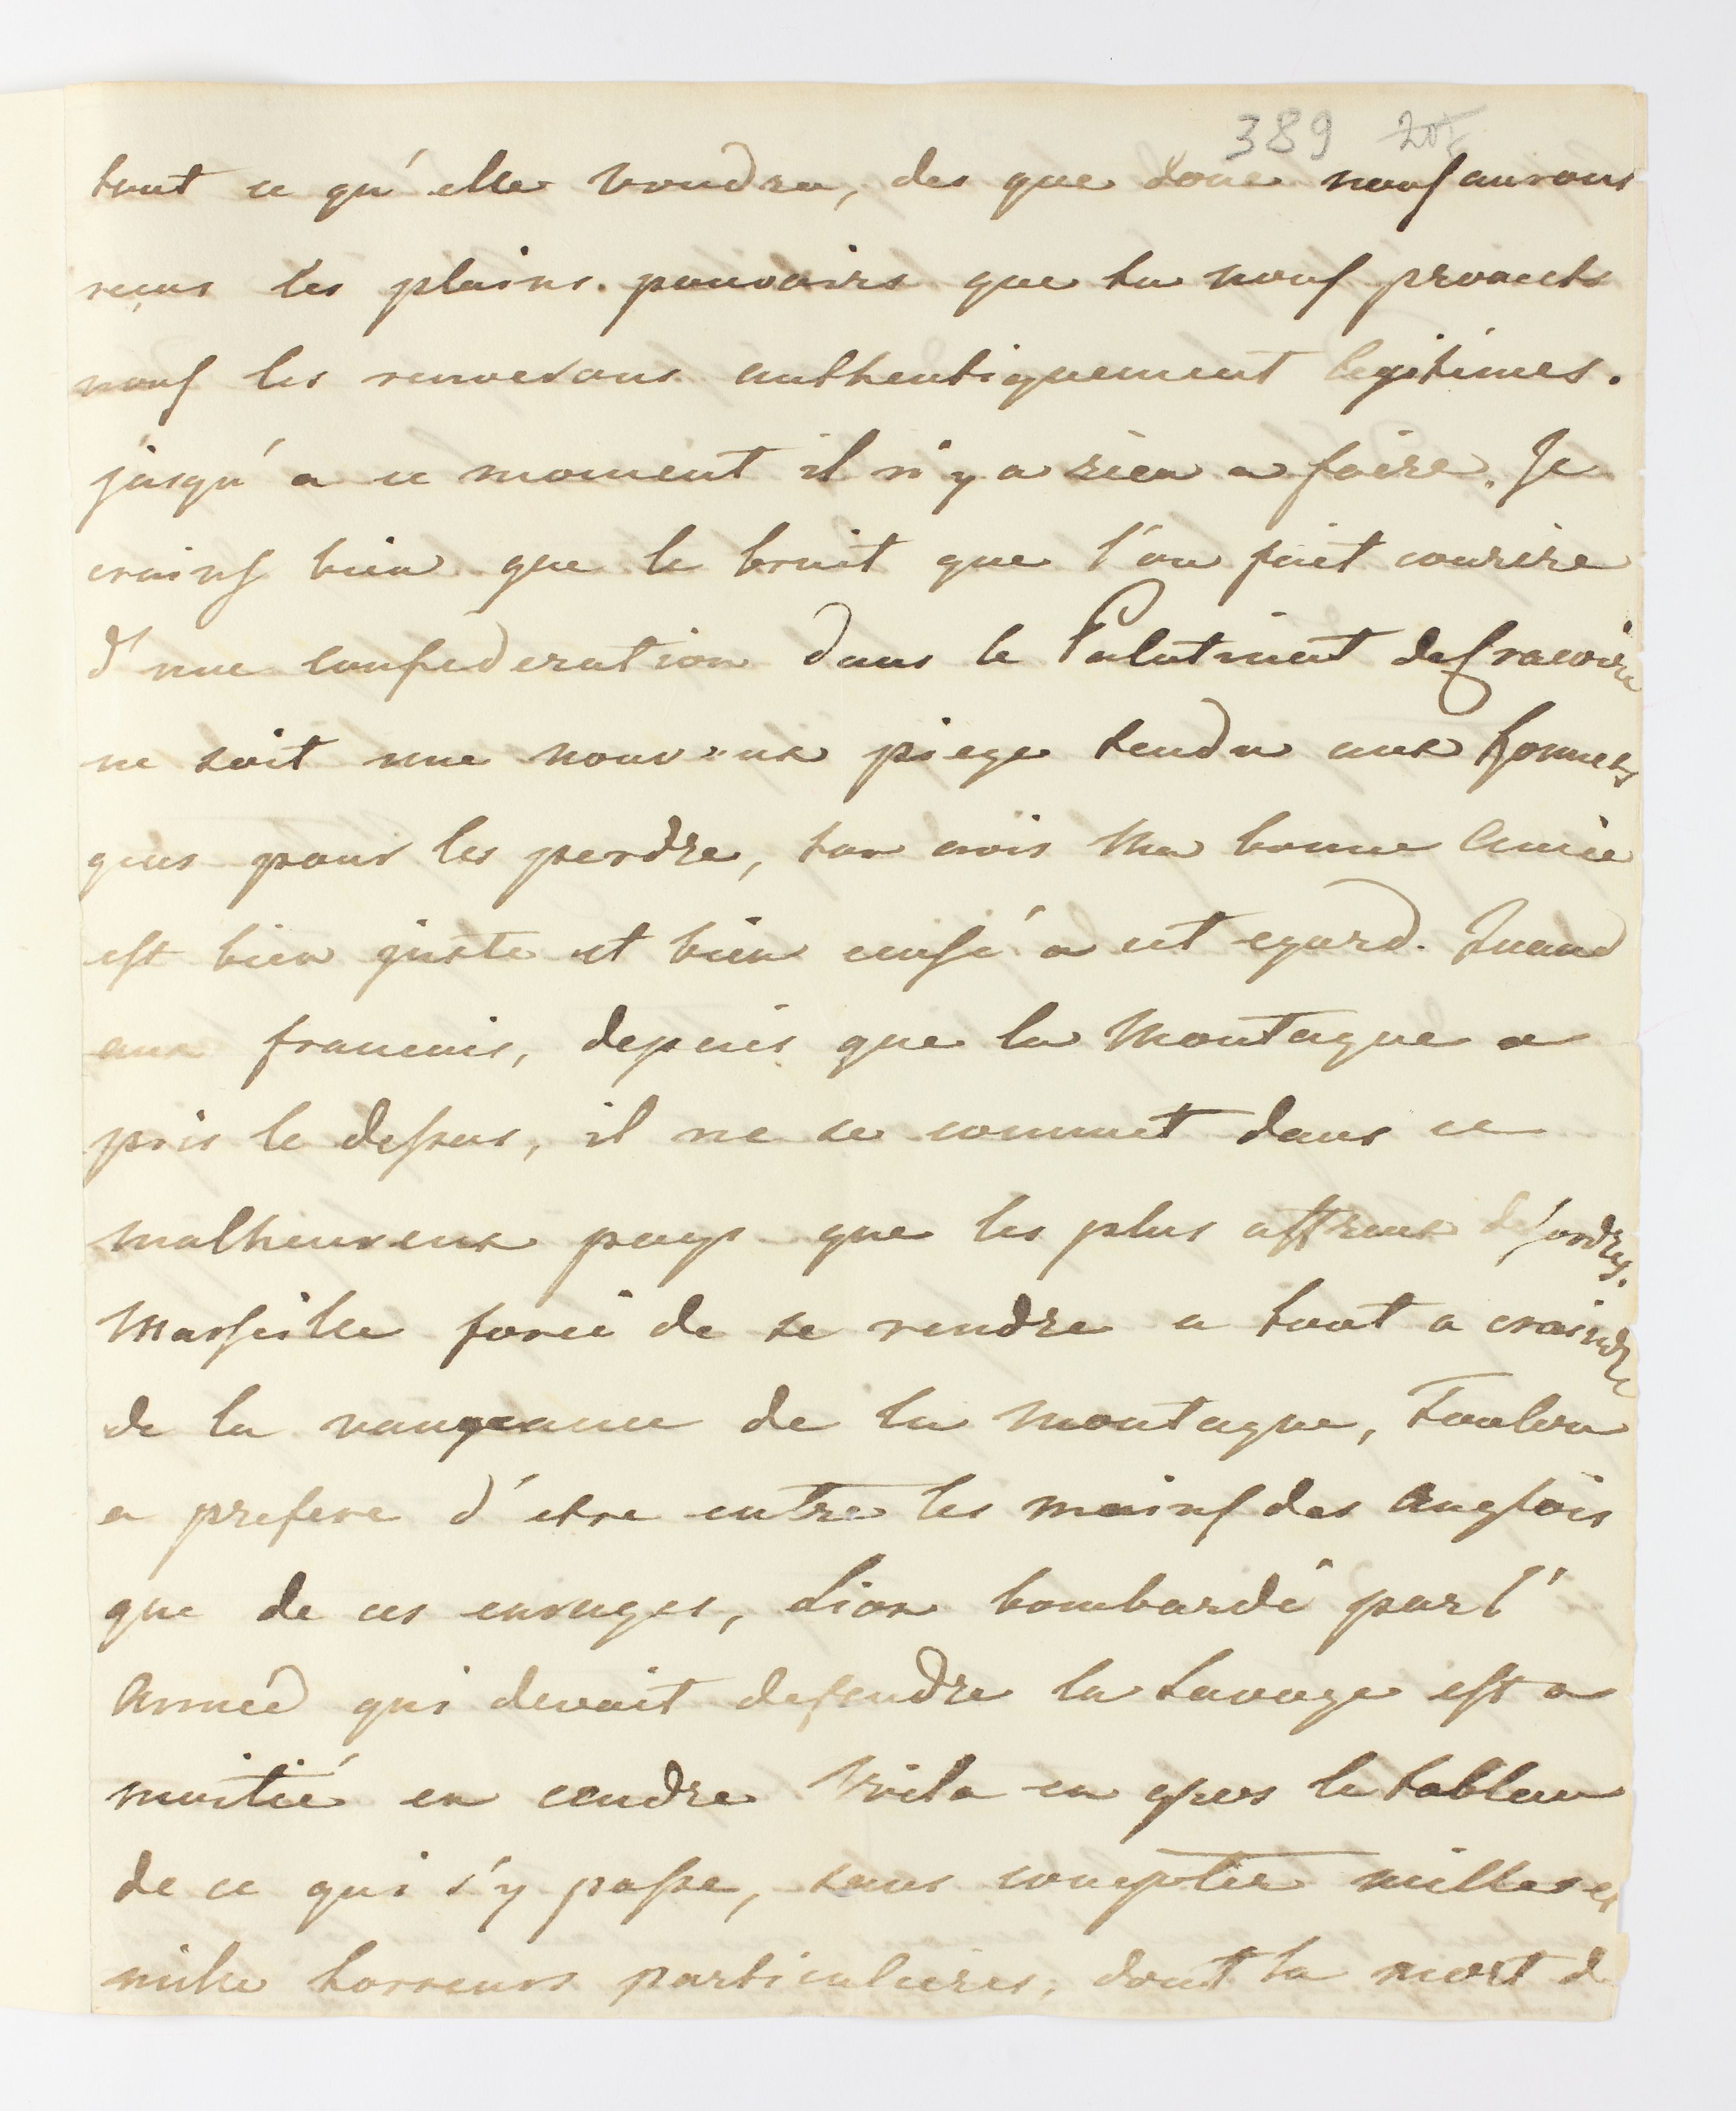 389
tout ce qu'elle voudra, des que donc nous aurons
reçus les plains pouvoirs que tu nous promets
nous les renverons authentiquement legitimes.
jusqu'a ce moment il n'y a rien a faire. Je
crains bien que le bruit que l'on fait courire
d'une confederation dans le Palatinat de Cracovie
ne soit une nouveux piege tendu aux honnets
gens pour les perdre, ton avis Ma bonne Amie
est bien juste et bien censé a cet egard. Quand
aux francais, depuis que la Montagne a
pris le dessus, il ne se commet dans ce
malheureux pays que les plus affreux desordres.
Marseille forcé de se rendre a tout a craindre
de la vangeance de la Montagne, Toulon
a prefere d'etre entre les mains des Anglois
que de ces enrages, Lion bombardé par l'
Armeé qui devait defendre la Savoye est a
moitié en cendre Voila en gros le tableau
de ce qui s'y passe, sans compter milles et
mille horreurs particulieres, dont la mort d